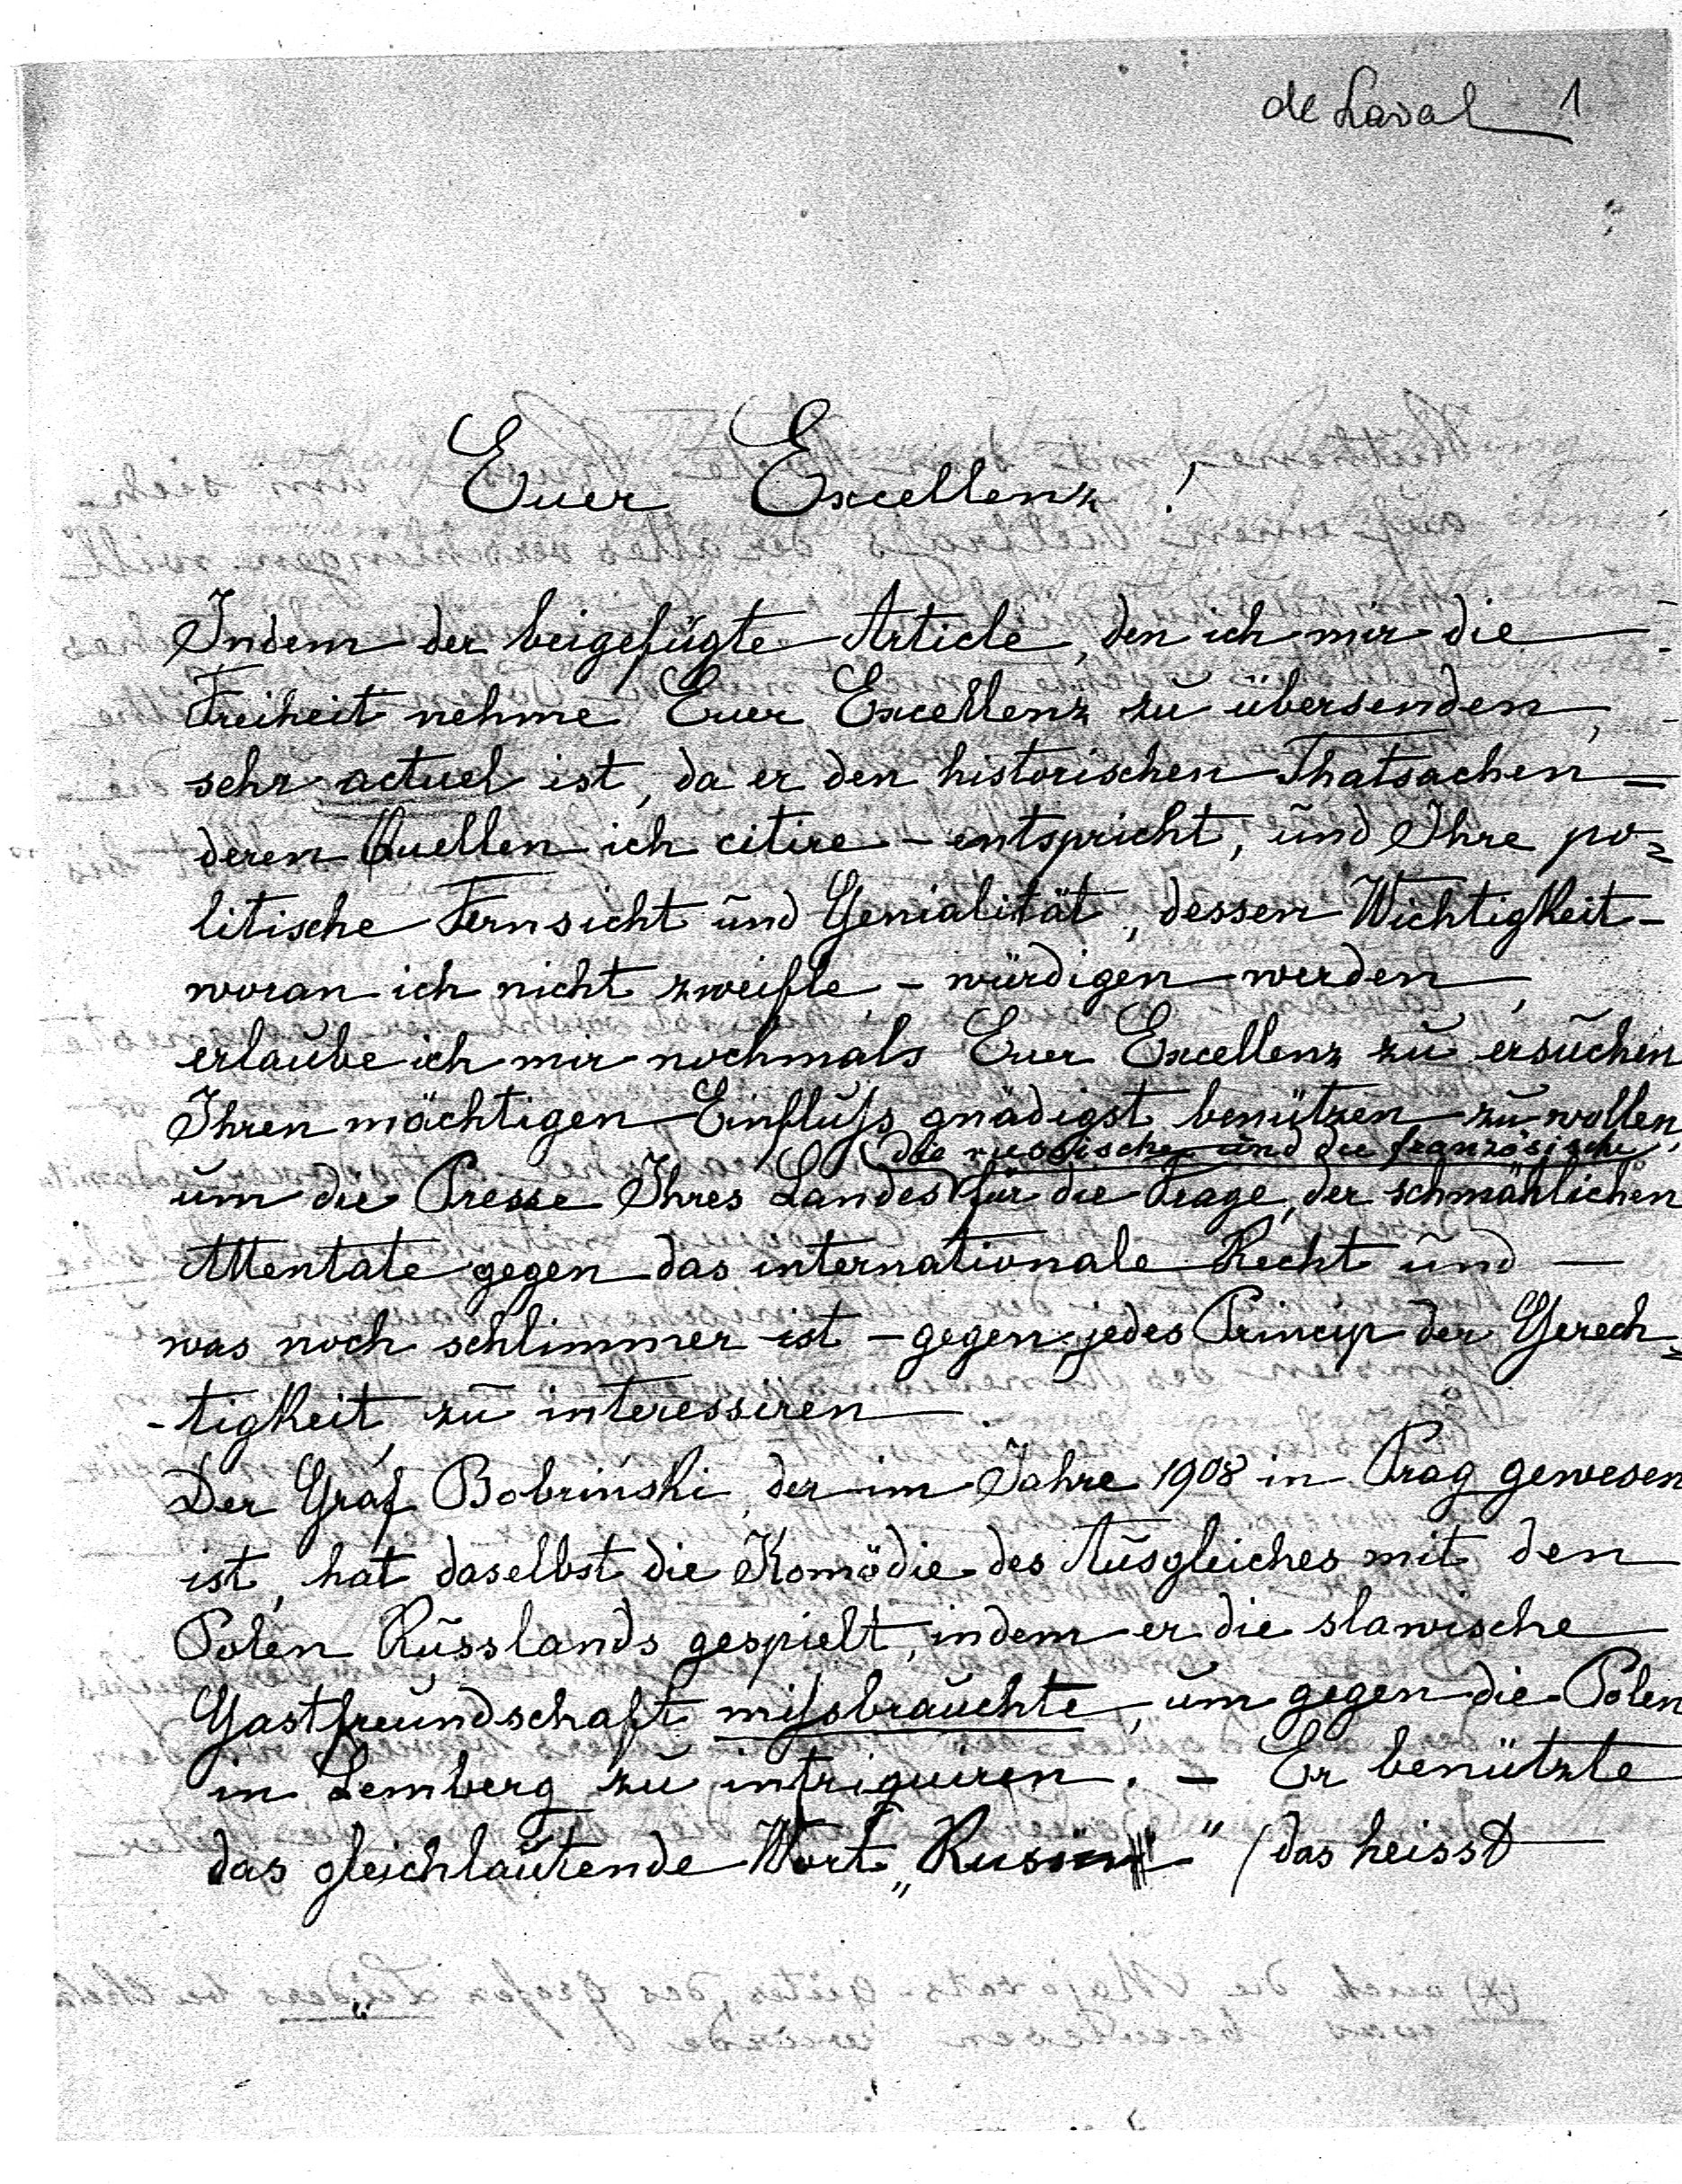 de Laval 1
Euer Excellenz!
Indem der beigefügte Article, den ich mir die
Freiheit nehme Euer Excellenz zu übersenden,
sehr actuel ist, da er den historischen Thatsachen –
deren Quellen ich citire – entspricht, und Ihre po=
litische Fernsicht und Genialität, dessen Wichtigkeit –
woran ich nicht zweifle, – würdigen werden,
erlaube ich mir nochmals Euer Excellenz zu ersuchen
Ihren mächtigen Einfluß gnädigst benützen zu wollen,
(die russische und die französische,
um die Presse Ihres Landes für die Frage, der schmählichen
Attentate gegen das internationale Recht und –
was noch schlimmer ist – gegen jedes Princip der Gerech=
-tigkeit zu interessiren.
Der Graf Bobrinski, der im Jahre 1908 in Prag gewesen
ist, hat daselbst die Komödie des Ausgleiches mit den
Polen Russlands gespielt, indem er die slawische
Gastfreundschaft mißbrauchte, um gegen die Polen
in Lemberg zu intriguiren. – Er benützte
das gleichlautende Wort „Rusin" (das heisst